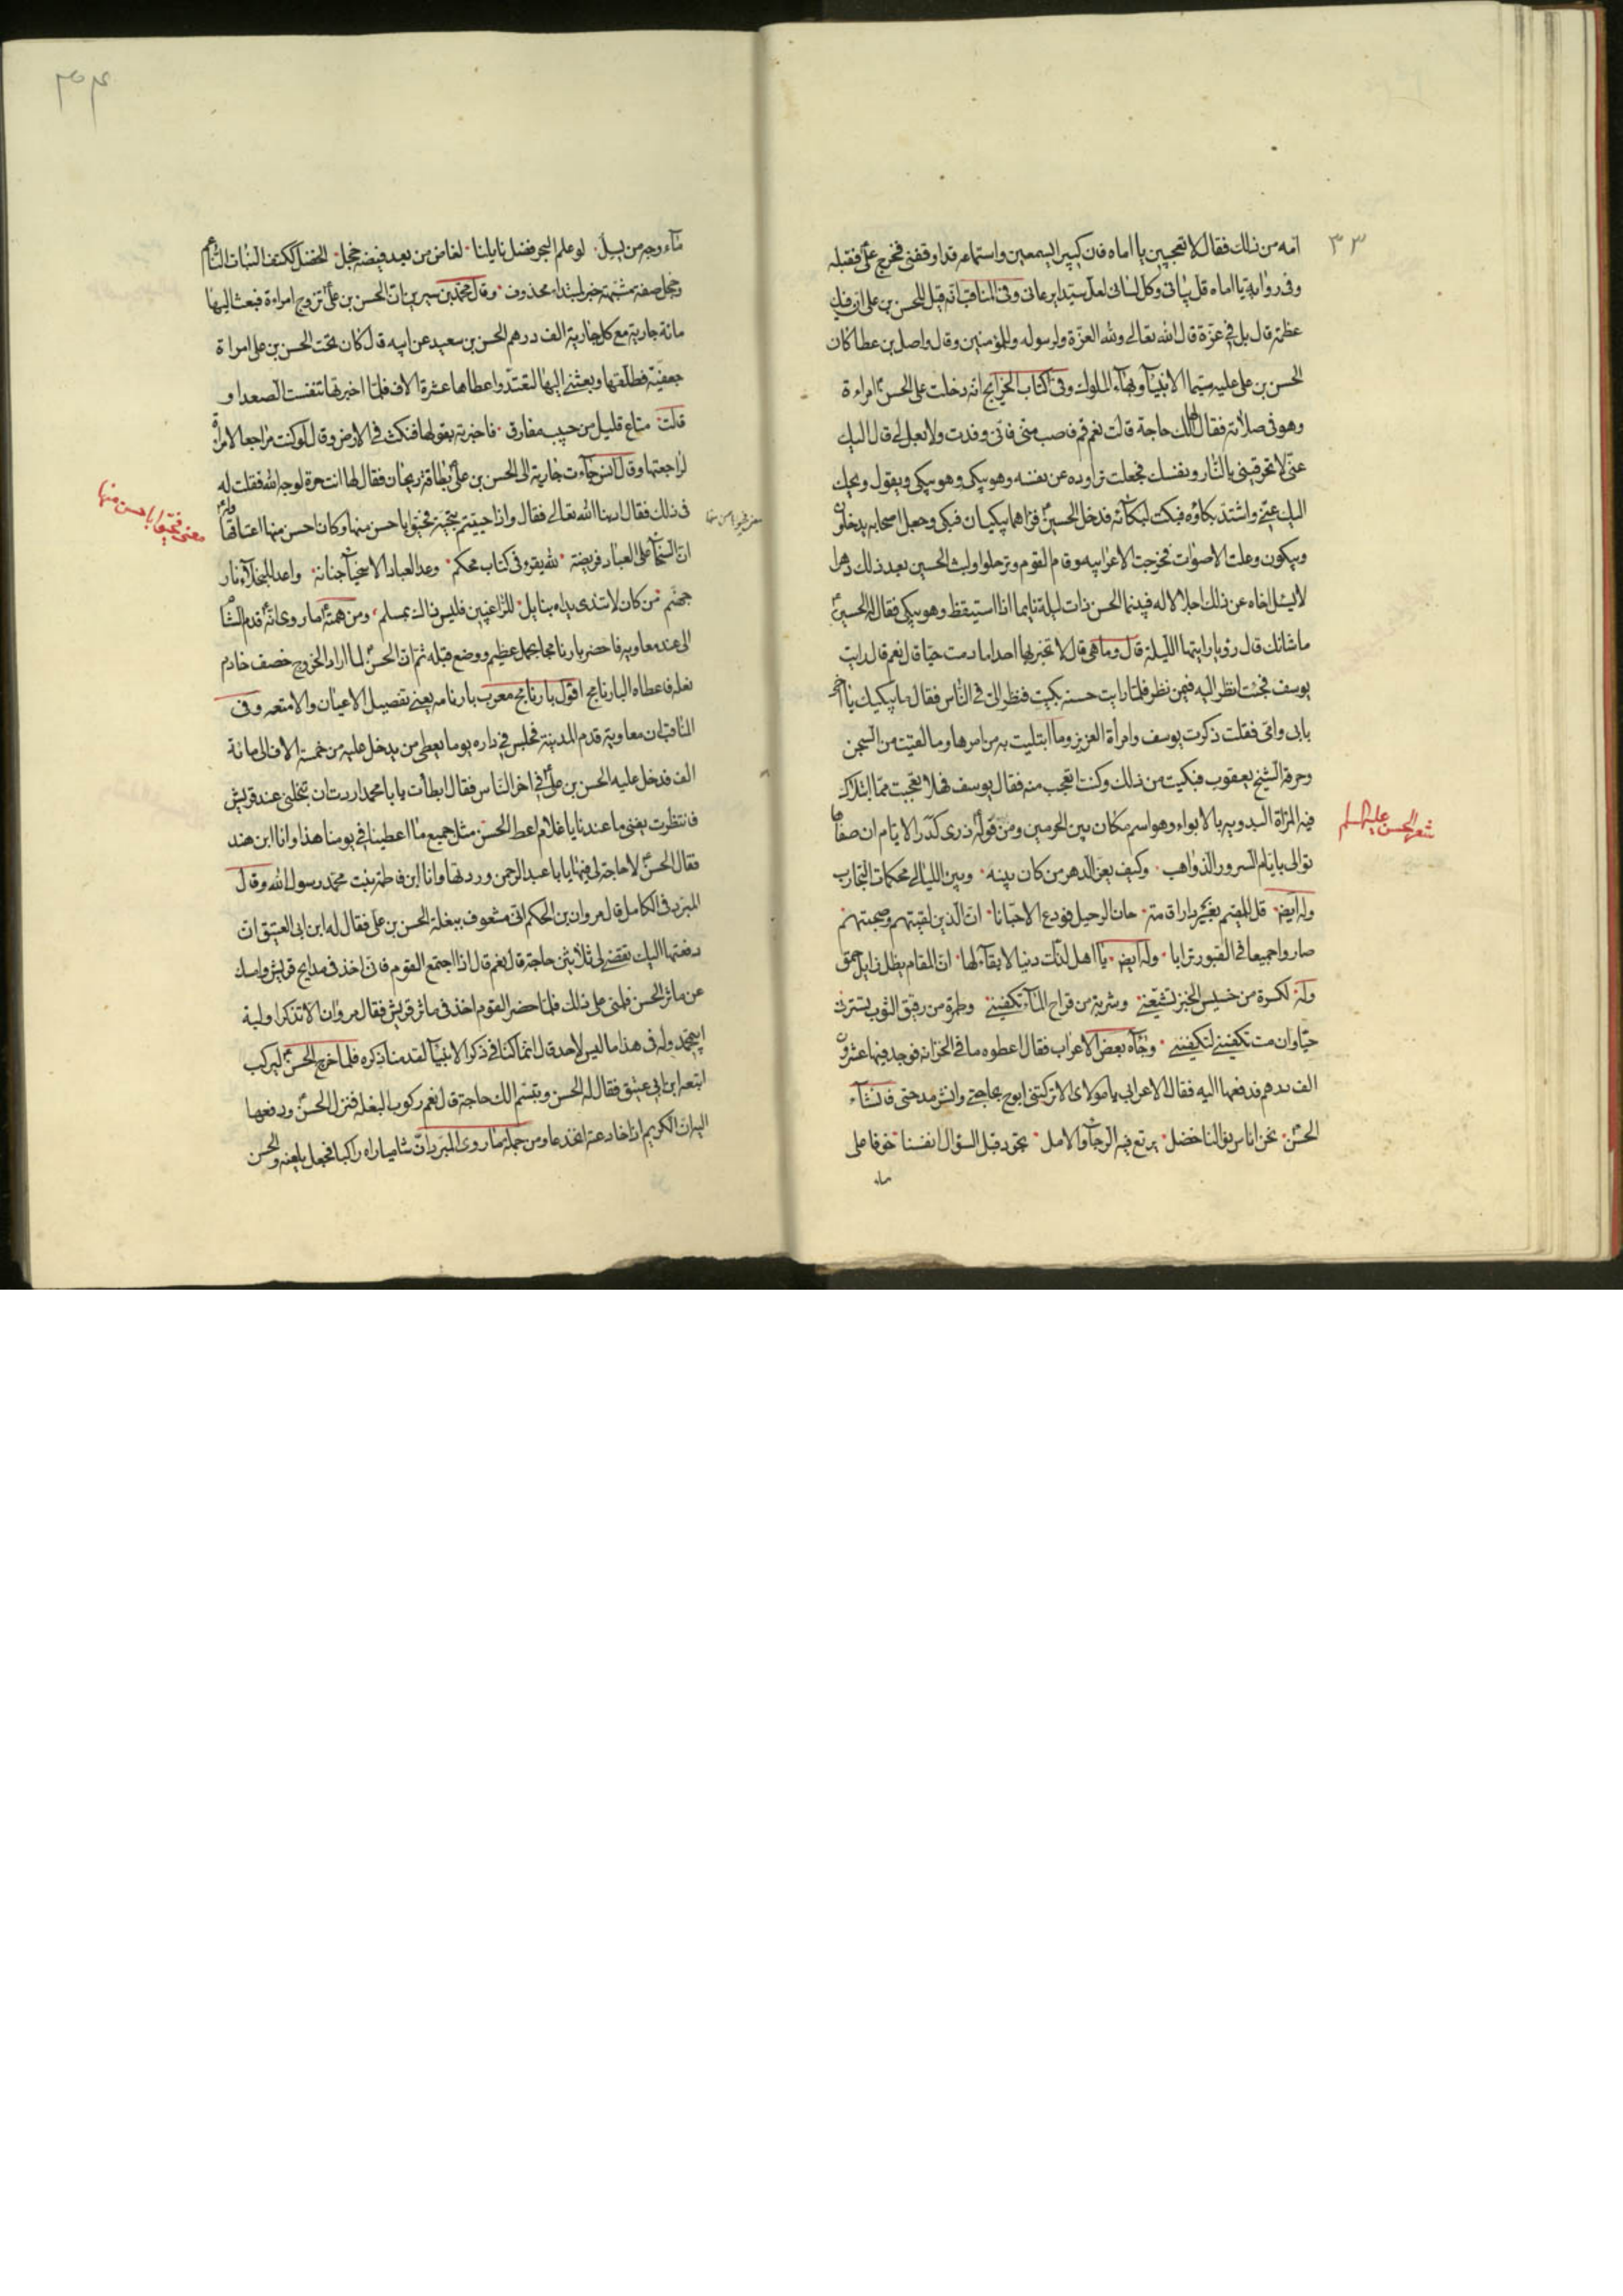 ٣٣
امه من ذلك فقال لا تعجبين يا اماه فان كبيرا يسمعني واستماعه قد اوقفني فخرج علي فقبله
وفى رواية يا اماه قل بياني وكل لساني لعل سيدا يرعاني وفى المناقب انه قيل للحسن بن على ان فيك
عظمة قال بل في عزة قال الله تعالى ولله العزة ولرسوله وللمؤمنين وقال واصل بن عطا كان
الحسن بن على عليه سيما الانبياء وبهاء الملوك وفى كتاب الخرايج انه دخلت على الحسن امراءة
وهو فى صلاته فقال لها الك حاجة قالت نعم قم فاصب منى فانى وفدت ولا بعل لى قال اليك
عنى لا تحرقينى بالنار ونفسك فجعلت تراوده عن نفسه وهو يبكى وهو يبكى ويقول ويحك
اليك عنى واشتد بكاؤه فبكت لبكائه فدخل الحسين فراهما يبكيان فبكى وجعل اصحابه يدخلون
ويبكون وعلت الاصوات فخرجت الاعرابيه وقام القوم وترحلوا ولبث الحسين بعد ذلك دهرا
لا يسئل اخاه عن ذلك اجلالا له فبينما الحسن ذات ليلة نايما اذا استيقظ وهو يبكى فقال له الحسين
ما شانك قال رؤيا رايتها الليلة قال وما هى قال لا تخبر بها احدا ما دمت حيا قال نعم قال رايت
يوسف فجئت انظر اليه فيمن نظر فلما رايت حسنه بكيت فنظر الى فى الناس فقال ما يبكيك يا اخى
بابى وامى فقلت ذكرت يوسف وامرأة العزيز وما ابتليت به من امرها وما لقيت من السجن
وحرقة الشيخ يعقوب فبكيت من ذلك وكنت اتعجب منه فقال يوسف فهلا تعجبت مما ابتلاك
فيه المراة البدويه بالابواء وهو اسم مكان بين الحرمين ومن قوله ذرى كدر الايام ان صفاها
تولى بايام السرور الذواهب وكيف يغر الدهر من كان بينه وبين الليالى محكمات التجارب
شعر الحسن عليه السلم
وله ايض قل للمقيم بغير دار اقامة حان الرحيل فودع الاحبابا ان الذين لقيتهم وصحبتهم
صاروا جميعا فى القبور ترابا وله ايض يا اهل لذات دنيا لا بقاء لها ان المقام بظل زايل حمق
وله لكسرة من خسيس الخبز تشبعنى وشربة من قراح الماء تكفينى وطمرة من رقيق الثوب تسترنى
حيا وان مت تكفينى لتكفينى وجاءه بعض الاعراب فقال اعطوه ما فى الخزانه فوجد فيها عشرون
الف درهم فدفعها اليه فقال الاعرابى يا مولاى الا تركتنى ابوح بحاجتى وانشر مدحتى فانشاء
الحسن نحن اناس نوالنا خضل يرتع فيه الرجاء والامل تجود قبل السؤال انفسنا خوفا على
ماء
ماء وجه من يسل لو علم البحر فضل نايلنا لغاض من بعد فيضه خجل الخضل ككتف النبات الناعم
وخجل صفة مشبهة خبر لمبتداء محذوف وقال محمد بن سيرين ان الحسن بن على تزوج امراءة فبعث اليها
مائة جارية مع كل جارية الف درهم الحسن بن سعيد عن ابيه قال كان تحت الحسن بن على امراة
جعفية فطلقها وبعثنى اليها لتعتد واعطاها عشرة الاف فلما اخبرتها تنفست الصعداو
قلت متاع قليل من حبيب مفارق فاخبرته بقولها فنكث فى الارض وقال لو كنت مراجعا لامراة
لراجعتها وقال انس جاءت جارية الى الحسن بن على بطاقة ريحان فقال لها انت حرة لوجه الله فقلت له
فى ذلك فقال ادبنا الله تعالى فقال واذا حييتم بتحية فحيوا باحسن منها وكان احسن منها اعتاقها وله
معنى فحيوا باحسن منها
ان السخاء على العباد فريضة لله يقرو فى كتاب محكم وعد العباد الاسخياء جنانه واعد للبخلاء نار
جهنم من كان لا تندى يداه بنايل للراغبين فليس ذاك بمسلم ومن همته ما روى انه قدم الشام
الى عند معاويه فاحضر بارنامجا بحمل عظيم ووضع قبله ثم ان الحسن لما اراد الخروج خصف خادم
نعله فاعطاه البارنامج اقول بارنامج معرب بارنامه يعنى تفصيل الاعيان والامتعه وفى
المناقب ان معاوية قدم المدينة فجلس فى داره يوما يعطى من يدخل عليه من خمسة الاف الى مائة
الف فدخل عليه الحسن بن على فى اخر الناس فقال ابطأت يا با محمد اردت ان تبخلنى عند قريش
فانتظرت يفنى ما عندنا يا غلام اعط الحسن مثل جميع ما اعطينا فى يومنا هذا وانا ابن هند
فقال الحسن لا حاجة لى فيها يا با عبد الرحمن ورددتها وانا ابن فاطمة بنت محمد رسول الله وقال
المبرد فى الكامل قال مروان بن الحكم انى مشعوف ببغلة الحسن بن على فقال له ابن ابى العتيق ان
دفعتها اليك تقضى لى ثلاثين حاجة قال نعم قال اذا اجتمع القوم فانى اخذ فى مدايح قريش وامسك
عن ماثر الحسن فلمنى على ذلك فلما حضر القوم اخذ فى ماثر قريش فقال مروان الا تذكر اولية
ابى محمد وله فى هذا ما ليس لاحد قال انما كنا فى ذكر الانبياء لقدمنا ذكره فلما خرج الحسن ليركب
اتبعه ابن ابى عتيق فقال له الحسن وتبسم الك حاجة قال نعم ركوب البغله فنزل الحسن ودفعها
اليه ان الكريم اذا خادعته انخدعا ومن حلمه ما روى المبرد ان شاميا راه راكبا فجعل يلعنه والحسن